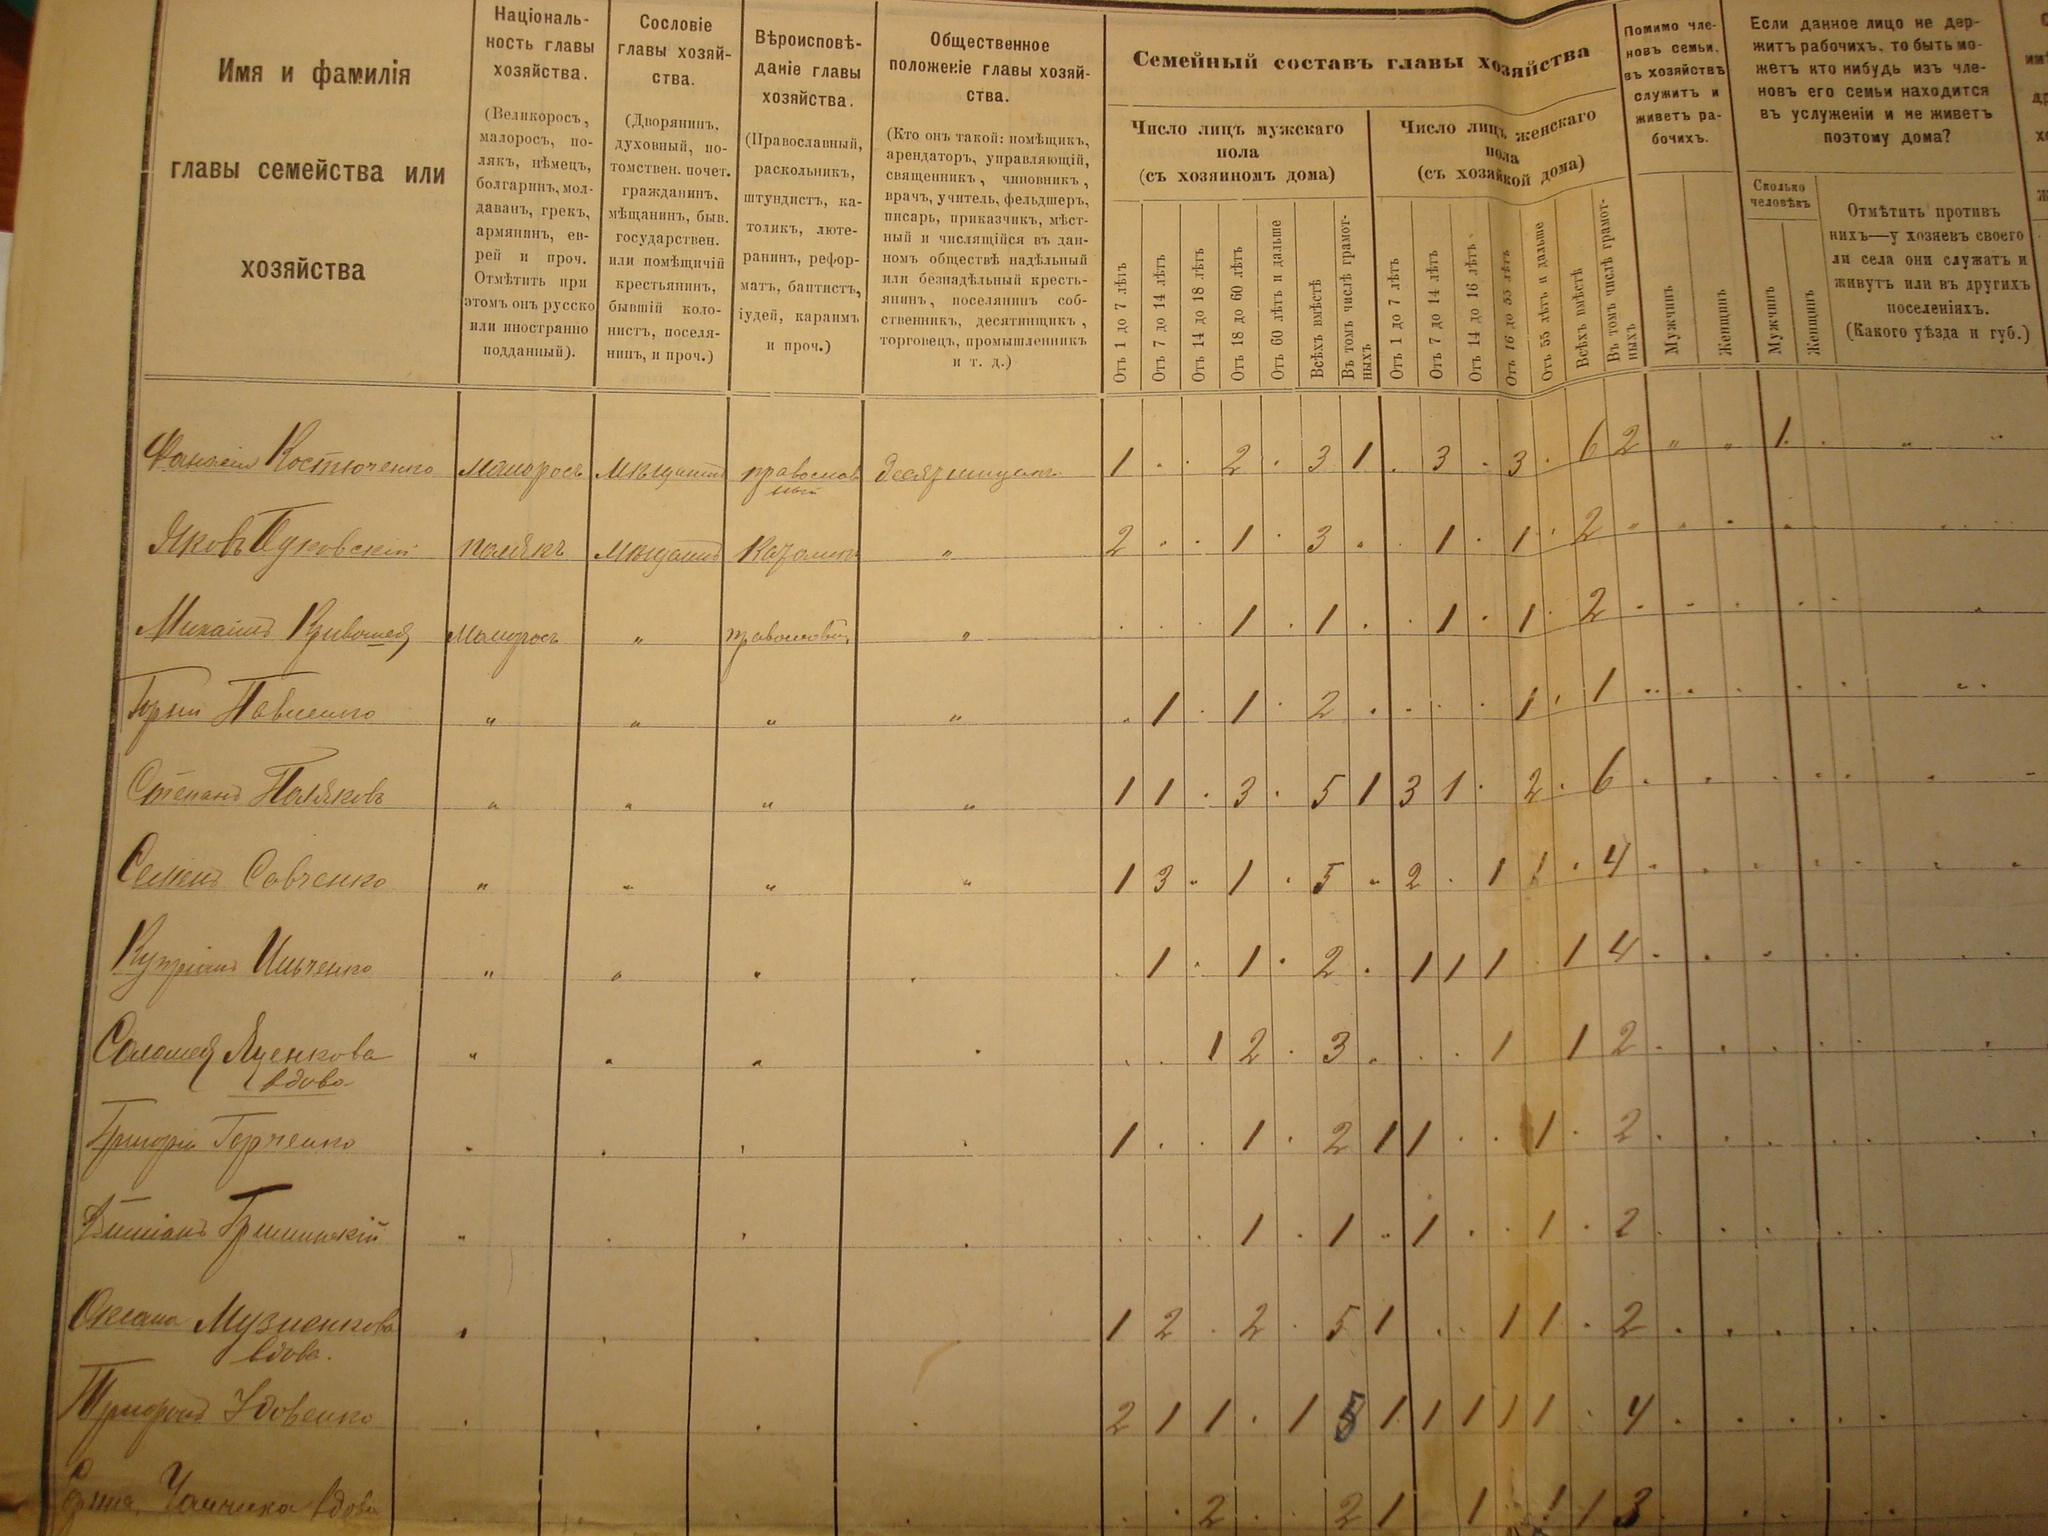 Имя и фамилія
главы семейства или
хозяйства
Націоналъ-
ность главы
хозяйства.
(Великоросъ,
малоросъ, по-
лякъ, нѣмецъ,
болгаринъ, мол-
даванъ, грекъ,
армянинъ, ев-
рей и проч.
Отмѣтить при
этомъ онъ русско
или иностранно
подданный).
Сословіе
главы хозяй-
ства.
(Дворянинъ,
духовный, по-
томствен. почет.
гражданинъ,
мѣщанинъ, быв.
государствен.
или помѣщичій
крестьянинъ,
бывшій коло-
нистъ, поселя-
нинъ, и проч.)
Вѣроисповѣ-
даніе главы
хозяйства.
(Православный,
раскольникъ,
штундистъ, ка-
толикъ, люте-
ранинъ, рефор-
матъ, баптистъ,
іудей, караимъ
и проч.)
Общественное
положеніе главы хозяй-
ства.
(Кто онъ такой: помѣщикъ,
арендаторъ, управляющій,
священникъ, чиновникъ,
врачъ, учитель, фельдшеръ,
писарь, приказчикъ, мѣст-
ный и числящійся въ дан-
номъ обществѣ надѣльный
или безнадѣльный кресть-
янинъ, поселянинъ соб-
ственникъ, десятинщикъ,
торговецъ, промышленникъ
и т. д.)
Семейный составъ главы хозяйства
Число лицъ мужскаго
пола
(съ хозяиномъ дома)
Отъ 1 до 7 лѣтъ
Отъ 7 до 14 лѣтъ
Отъ 14 до 18 лѣтъ
Отъ 18 до 60 лѣтъ
Отъ 60 лѣтъ и дальше
Всѣхъ вмѣстѣ
Въ томъ числѣ грамот-
ныхъ
Число лицъ женскаго
пола
(съ хозяйкой дома)
Отъ 1 до 7 лѣтъ
Отъ 7 до 14 лѣтъ
Отъ 14 до 16 лѣтъ
Отъ 16 до 55 лѣтъ
Отъ 55 лѣтъ и дальше
Всѣхъ вмѣстѣ
Въ томъ числѣ грамот-
ныхъ
Помимо чле-
новъ семьи,
въ хозяйствѣ
служитъ и
живетъ ра-
бочихъ.
Мужчинъ
Женщинъ
Если данное лицо не дер-
житъ рабочихъ, то быть мо-
жетъ кто нибудь изъ чле-
новъ его семьи находится
въ услуженіи и не живетъ
поэтому дома?
Сколько
человѣкъ
Мужчинъ
Женщинъ
Отмѣтить противъ
нихъ—у хозяевъ своего
ли села они служатъ и
живутъ или въ другихъ
поселеніяхъ.
(Какого уѣзда и губ.)
Костюченко малоросъ Мѣщанинъ православ 1 . . 2 . 3 1 . 3 . 3 . 6 2 „ „ 1 . „ „
ный
Яковъ полякъ Мѣщанинъ Католикъ „ 2 . . 1 . 3 . . 1 . 1 . 2
Михаилъ Кривошея Малоросъ „ православн. „ . . . 1 . 1 . . 1 . 1 . 2
Павленко „ „ „ „ . 1 . 1 . 2 . . . . 1 . 1
Степанъ Поляковъ „ „ „ „ 1 1 . 3 . 5 1 3 1 . 2 . 6
Семенъ Савченко „ „ „ „ 1 3 . 1 . 5 . 2 . 1 1 . 4
Ильченко „ „ „ . . 1 . 1 . 2 . 1 1 1 . 1 4
Соломея Яценкова „ „ „ . . . 1 2 . 3 . . . 1 1 2
вдова
Григорій Горченко 1 . . 1 . 2 1 1 . . 1 . 2
. . . 1 . 1 . 1 . . 1 . 2
Оксана Музиенкова 1 2 . 2 . 5 1 . . 1 1 . 2
вдова.
Удовенко 2 1 1 . 1 5 1 1 1 1 1 . 4
вдова . . 2 . . 2 1 1 . 1 1 3